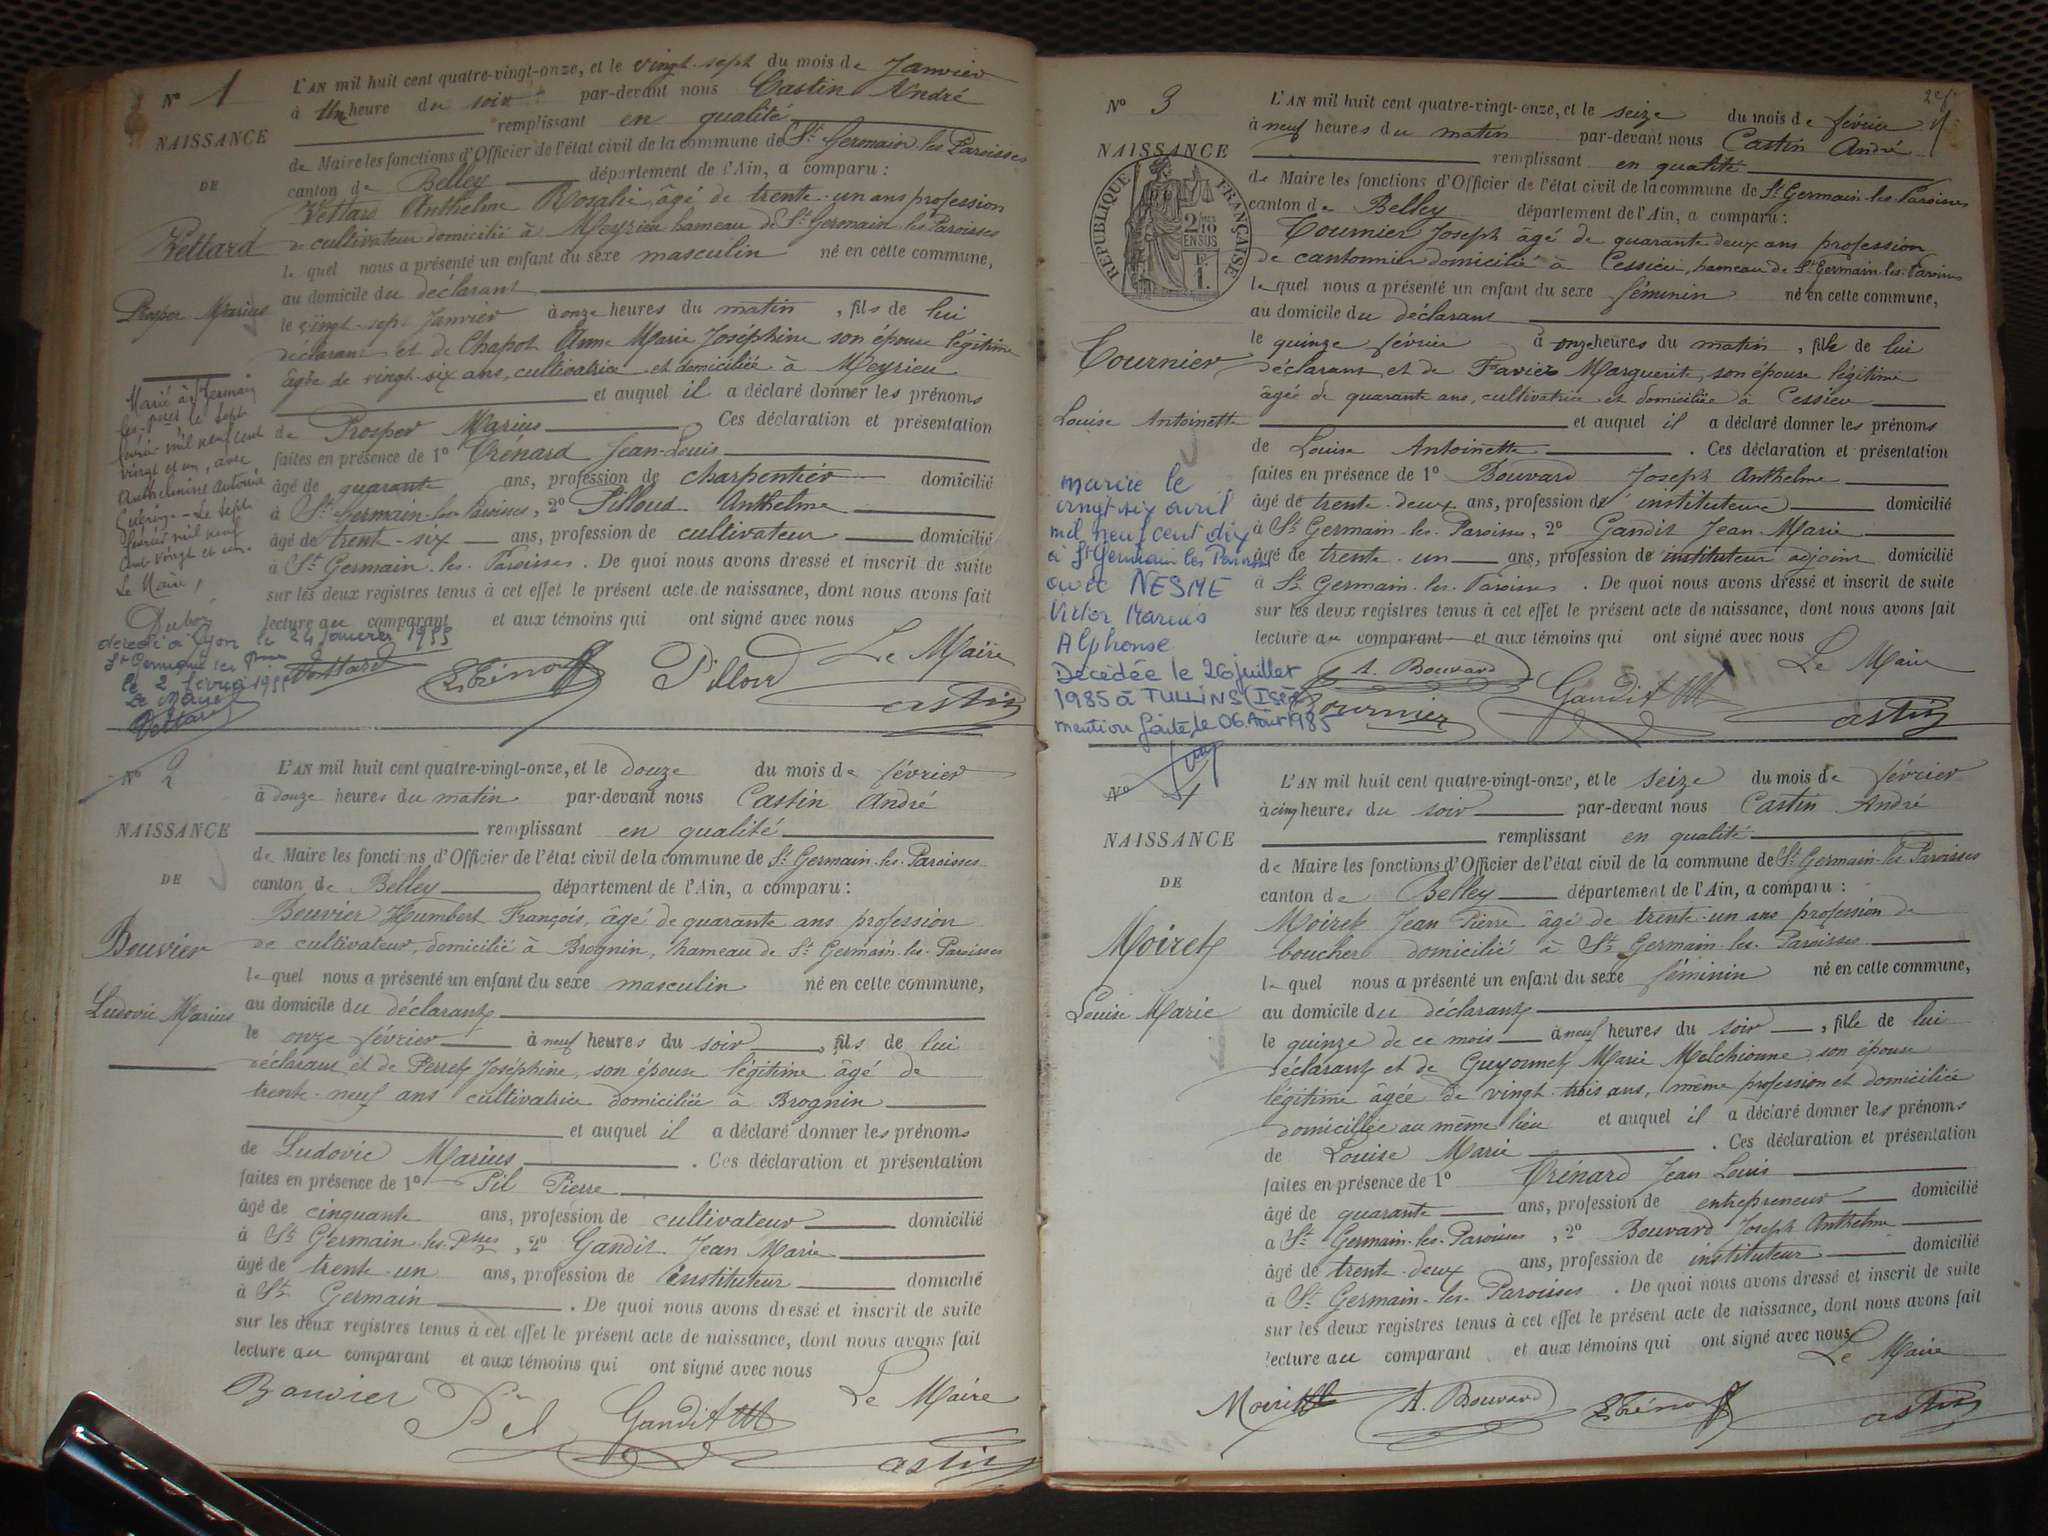 N° 1
NAISSANCE
DE
Vettard
Prosper Marius
Marié à St Germain
les-Psses le sept
février mil neuf cent
vingt et un, avec
Anthelmine Antonia
Le sept
février mil neuf
cent vingt et un.
Le Maire,
décédé à Lyon le 24 janvier 1955
St Germain les
le 2 février 1955
Le Maire
Vettard
L'AN mil huit cent quatre-vingt-onze, et le vingt-sept du mois de Janvier
à Une heure du soir par-devant nous Castin André
remplissant en qualité
de Maire les fonctions d'Officier de l'état civil de la commune de St Germain les Paroisses
canton de Belley département de l'Ain, a comparu :
Vettard Anthelme Rosalie, âgé de trente-un ans profession
de cultivateur domicilié à Meyrieu hameau de St Germain les Paroisses
lequel nous a présenté un enfant du sexe masculin né en cette commune,
au domicile du déclarant
le vingt-sept Janvier à onze heures du matin , fils de lui
déclarant et de Chapot Anne Marie Joséphine son épouse légitime
âgée de vingt-six ans, cultivatrice et domiciliée à Meyrieu
et auquel il a déclaré donner les prénoms
de Prosper Marius . Ces déclaration et présentation
faites en présence de 1° Trénard Jean-Louis
âgé de quarante ans, profession de charpentier domicilié
à St Germain-les-Paroisses, 2° Pilloud Anthelme
âgé de trente-six ans, profession de cultivateur domicilié
à St Germain-les-Paroisses. De quoi nous avons dressé et inscrit de suite
sur les deux registres tenus à cet effet le présent acte de naissance, dont nous avons fait
lecture au comparant et aux témoins qui ont signé avec nous
Le Maire
Vettard Trénard Pilloud Castin
N° 2
NAISSANCE
DE
Bouvier
Ludovic Marius
L'AN mil huit cent quatre-vingt-onze, et le douze du mois de février
à douze heures du matin par-devant nous Castin André
remplissant en qualité
de Maire les fonctions d'Officier de l'état civil de la commune de St Germain-les-Paroisses
canton de Belley département de l'Ain, a comparu :
Bouvier Humbert François, âgé de quarante ans profession
de cultivateur, domicilié à Brognin, hameau de St Germain-les-Paroisses
lequel nous a présenté un enfant du sexe masculin né en cette commune,
au domicile du déclarant
le onze février à neuf heures du soir , fils de lui
déclarant et de Perret Joséphine, son épouse légitime âgé de
trente-neuf ans cultivatrice domiciliée à Brognin
et auquel il a déclaré donner les prénoms
de Ludovic Marius . Ces déclaration et présentation
faites en présence de 1° Pil Pierre
âgé de cinquante ans, profession de cultivateur domicilié
à St Germain-les-Psses, 2° Gandit Jean Marie
âgé de trente-un ans, profession de instituteur domicilié
à St Germain . De quoi nous avons dressé et inscrit de suite
sur les deux registres tenus à cet effet le présent acte de naissance, dont nous avons fait
lecture au comparant et aux témoins qui ont signé avec nous
Le Maire
Bouvier Pil Gandit Castin
N° 3
NAISSANCE
RÉPUBLIQUE FRANÇAISE
2/10
EN SUS
1F
Tournier
Louise Antoinette
mariée le
vingt six avril
mil neuf cent dix
à St Germain les Paroisses
avec NESME
Victor Marius
Alphonse
Décédée le 26 juillet
1985 à TULLINS (Isère)
mention faite, le 06 Août 1985
L'AN mil huit cent quatre-vingt-onze, et le seize du mois de février
à neuf heures du matin par-devant nous Castin André
remplissant en qualité
de Maire les fonctions d'Officier de l'état civil de la commune de St Germain-les-Paroisses
canton de Belley département de l'Ain, a comparu :
Tournier Joseph âgé de quarante-deux ans profession
de cantonnier domicilié à Cessieu, hameau de St Germain-les-Paroisses
lequel nous a présenté un enfant du sexe féminin né en cette commune,
au domicile du déclarant
le quinze février à onze heures du matin , fille de lui
déclarant et de Favier Marguerite, son épouse légitime
âgée de quarante ans, cultivatrice et domiciliée à Cessieu
et auquel il a déclaré donner les prénoms
de Louise Antoinette . Ces déclaration et présentation
faites en présence de 1° Bouvard Joseph Anthelme
âgé de trente-deux ans, profession de instituteur domicilié
à St Germain-les-Paroisses, 2° Gandit Jean-Marie
âgé de trente-un ans, profession de instituteur adjoint domicilié
à St Germain-les-Paroisses . De quoi nous avons dressé et inscrit de suite
sur les deux registres tenus à cet effet le présent acte de naissance, dont nous avons fait
lecture au comparant et aux témoins qui ont signé avec nous
Le Maire
A. Bouvard
Tournier Gandit Castin
N° 4
NAISSANCE
DE
Moiret
Louise Marie
L'AN mil huit cent quatre-vingt-onze, et le seize du mois de février
à cinq heures du soir par-devant nous Castin André
remplissant en qualité
de Maire les fonctions d'Officier de l'état civil de la commune de St Germain-les-Paroisses
canton de Belley département de l'Ain, a comparu :
Moiret Jean Pierre âgé de trente-un ans profession de
boucher domicilié à St Germain-les-Paroisses
lequel nous a présenté un enfant du sexe féminin né en cette commune,
au domicile du déclarant
le quinze de ce mois à neuf heures du soir , fille de lui
déclarant et de Guyonnet Marie Melchionne, son épouse
légitime âgée de vingt-trois ans, même profession et domiciliée
domiciliée au même lieu et auquel il a déclaré donner les prénoms
de Louise Marie . Ces déclaration et présentation
faites en présence de 1° Trénard Jean Louis
âgé de quarante ans, profession de entrepreneur domicilié
à St Germain-les-Paroisses, 2° Bouvard Joseph Anthelme
âgé de trente-deux ans, profession de instituteur domicilié
à St Germain-les-Paroisses . De quoi nous avons dressé et inscrit de suite
sur les deux registres tenus à cet effet le présent acte de naissance, dont nous avons fait
lecture au comparant et aux témoins qui ont signé avec nous
Le Maire
Moiret A. Bouvard Trénard Castin